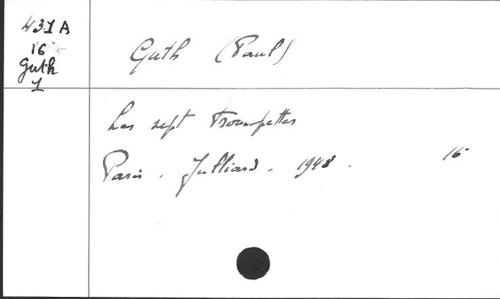 431A
16
Guth
1
Guth (Paul)
Les sept Trompettes
Paris. Julliard. 1948. 16°